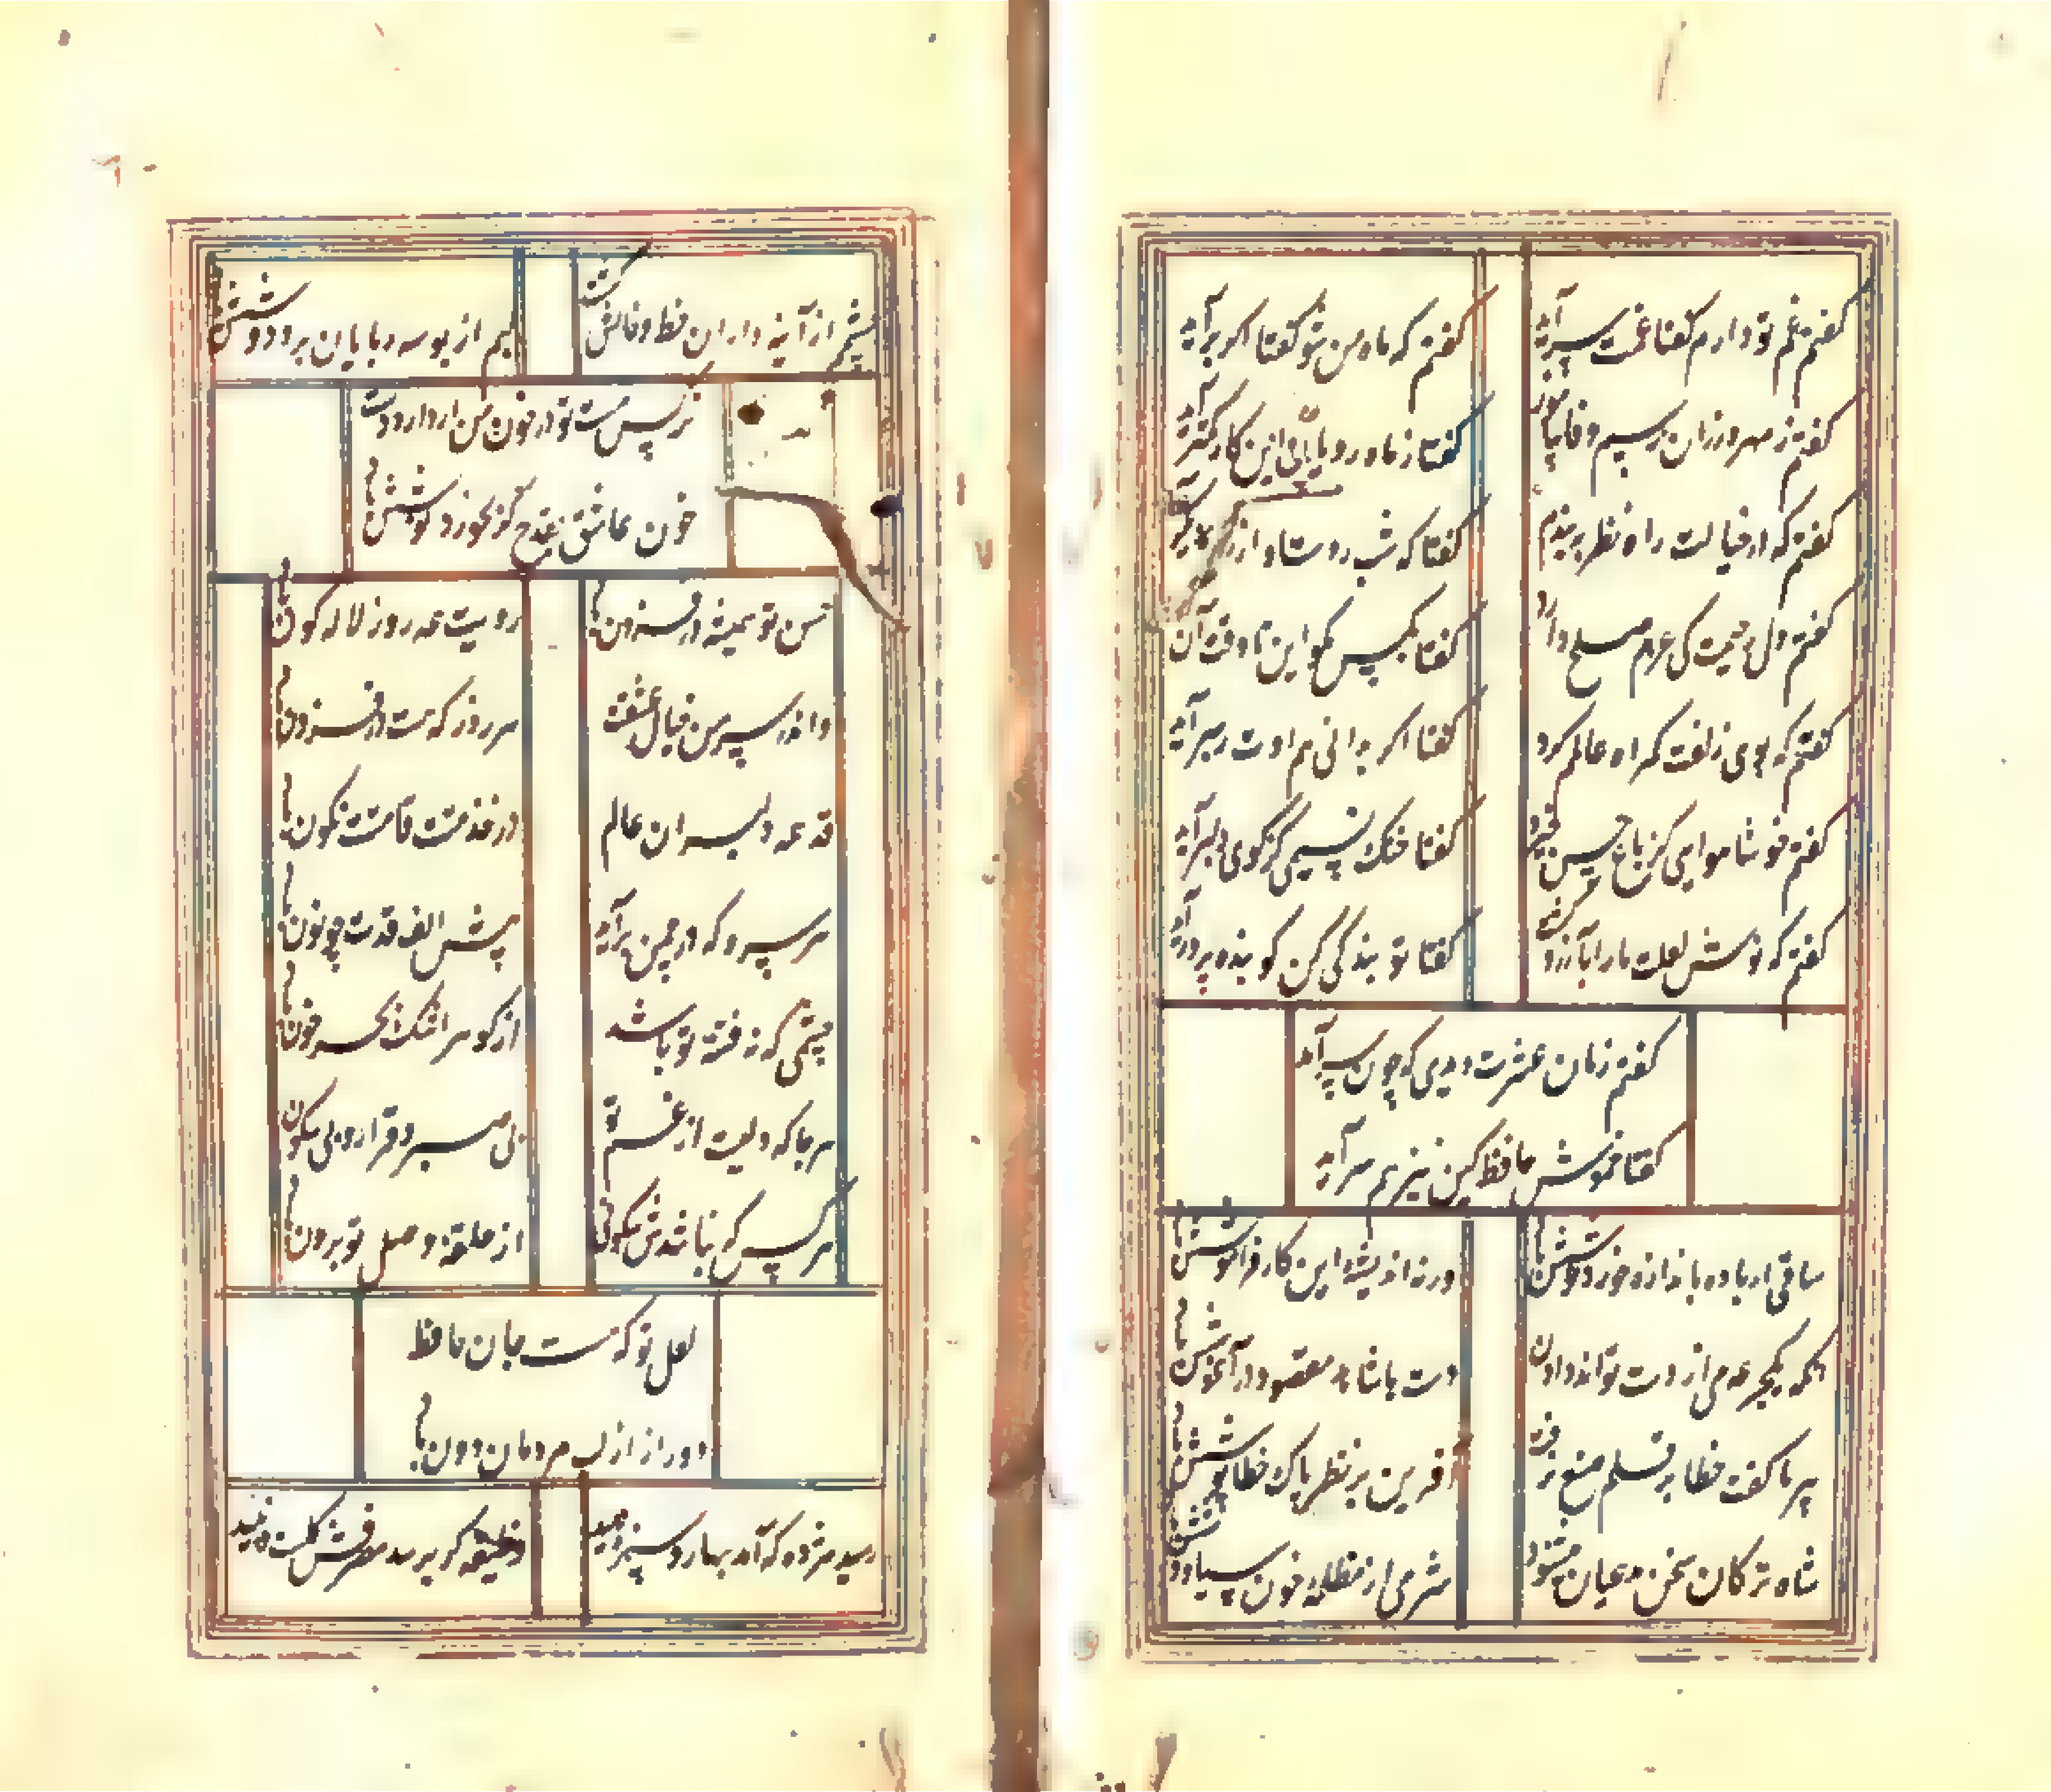 کفتم غم تو دارم کفتا غمت سرآید
کفتم که ماه من شو کفتا اکر برآید
کفتم ز مهرورزان رسم وفا بیاموز
کفتا ز ماه رویان این کار کمتر آید
کفتم که از خیالت راه نظر ببندم
کفتا که شب روست او از راه دیکر آید
کفتم دل رحیمت کی عزم صلح دارد
کفتا مکو با کس این تا وقت آن
کفتم که بوی زلفت کمراه عالمم کرد
کفتا اکر بدانی هم اوت رهبر آید
کفتم خوشا هوایی کز باغ حسن خیزد
کفتا خنک نسیمی کز کوی دلبر آید
کفتم که نوش لعلت ما را بآرزو کشت
کفتا تو بندکی کن کو بنده پرور آید
کفتم زمان عشرت دیدی که چون سرآمد
کفتا خموش حافظ کین نیز هم سرآید
ساقی ار باده باندازه خورد نوشش باد
ورنه اندیشه این کار فراموشش باد
آنکه یکجرعه می از دست تواند دادن
دست با شاهد مقصود در آغوشش باد
پیر ما کفت خطا بر قلم صنع نرفت
آفرین بر نظر پاک خطاپوشش باد
شاه ترکان سخن مدعیان میشنود
شرمی از مظلمه خون سیاووشش
چشمم از آینه داران خط و خالش کشت
لبم از بوسه ربایان بر و دوشش
نرکس مست تو در خون من ار دارد دست
خون عاشق بقدح کر بخورد نوشش باد
حسن تو همیشه در فزون باد
رویت همه روز لاله کون باد
واندر سر من خیال عشقت
هر روز که هست در فزون باد
قد همه دلبران عالم
در خدمت قامتت نکون باد
هر سرو که در چمن برآید
پیش الف قدت چو نون باد
چشمی که نه فتنه تو باشد
از کوهر اشک بحر خون باد
هر جا که دلیست از غم تو
بی صبر و قرار و بی سکون
هر کس که نباشدش سکونی
از حلقه وصل تو برون باد
لعل تو که هست جان حافظ
دور از لب مردمان دون باد
رسید مژده که آمد بهار و سبزه دمید
وظیفه کر برسد مصرفش کلست و نبید